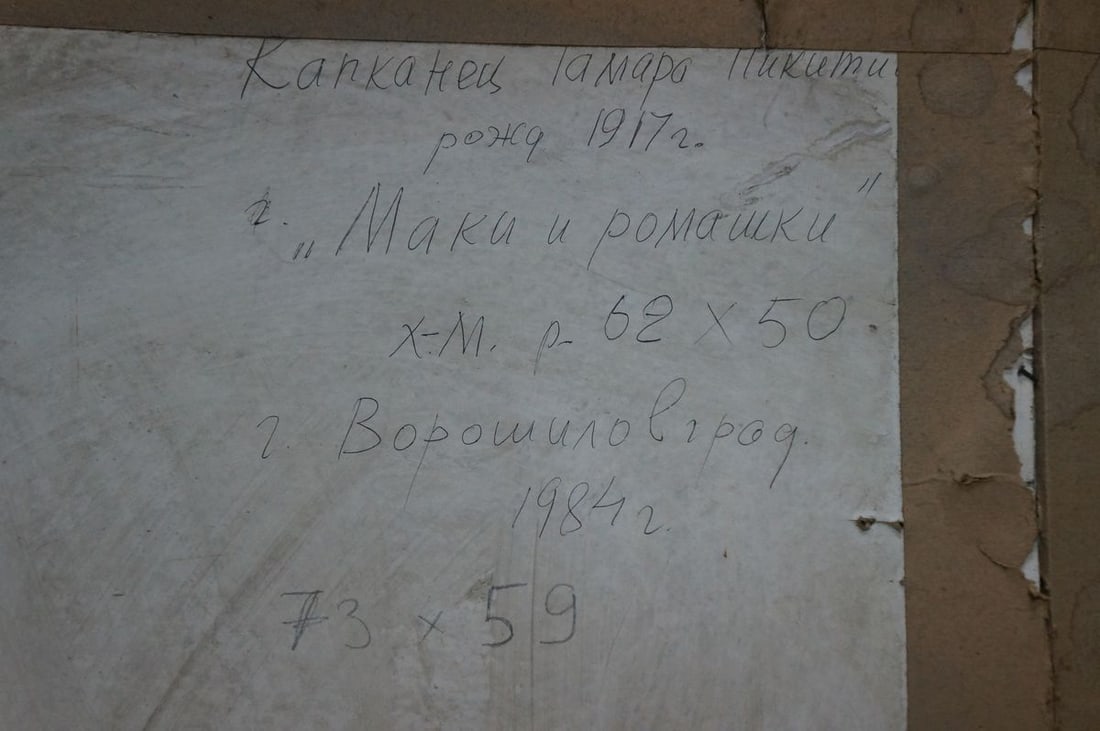 Капканец Тамара Никити
рожд 1917г.
г. „Маки и ромашки"
х-м. р- 62 х 50
г. Ворошиловград.
1984г.
73 х 59